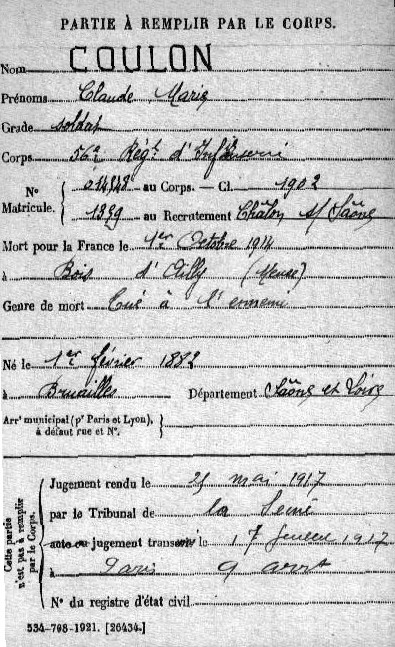 PARTIE À REMPLIR PAR LE CORPS.
Nom COULON
Prénoms Claude Marie
Grade soldat
Corps 56e Régt d'Infanterie
N° Matricule. 014848 au Corps. — Cl. 1902
1399 au Recrutement Châlon s/ Saône
Mort pour la France le 1er Octobre 1914
à Bois d'Ailly (Meuse)
Genre de mort Tué à l'ennemi
Né le 1er février 1882
à Bruailles Département Saône et Loire
Arrt municipal (pr Paris et Lyon),
à défaut rue et N°.
Cette partie
n'est pas à remplir
par le Corps.
Jugement rendu le mai 1917
par le Tribunal de la Seine
acte ou jugement transcrit le 17 1917
à Paris 9 arrt
N° du registre d'état civil
534-708-1921. [26434.]